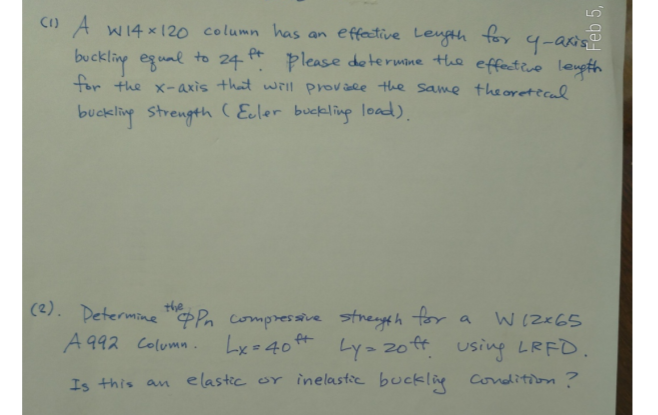 (1) A W14×120 column has an effective Length for y-axis
buckling equal to 24 ft. please determine the effective length
for the x-axis that will provide the same theoretical
buckling strength (Euler buckling load).
(2). Determine the ΦPn compressive strength for a W12×65
A992 Column. Lx=40ft Ly=20ft. using LRFD.
Is this an elastic or inelastic buckling condition?
Feb 5,